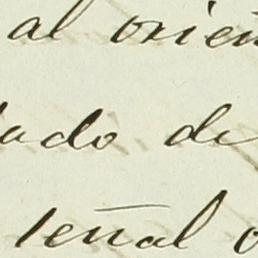 al orien
ado de
señal o